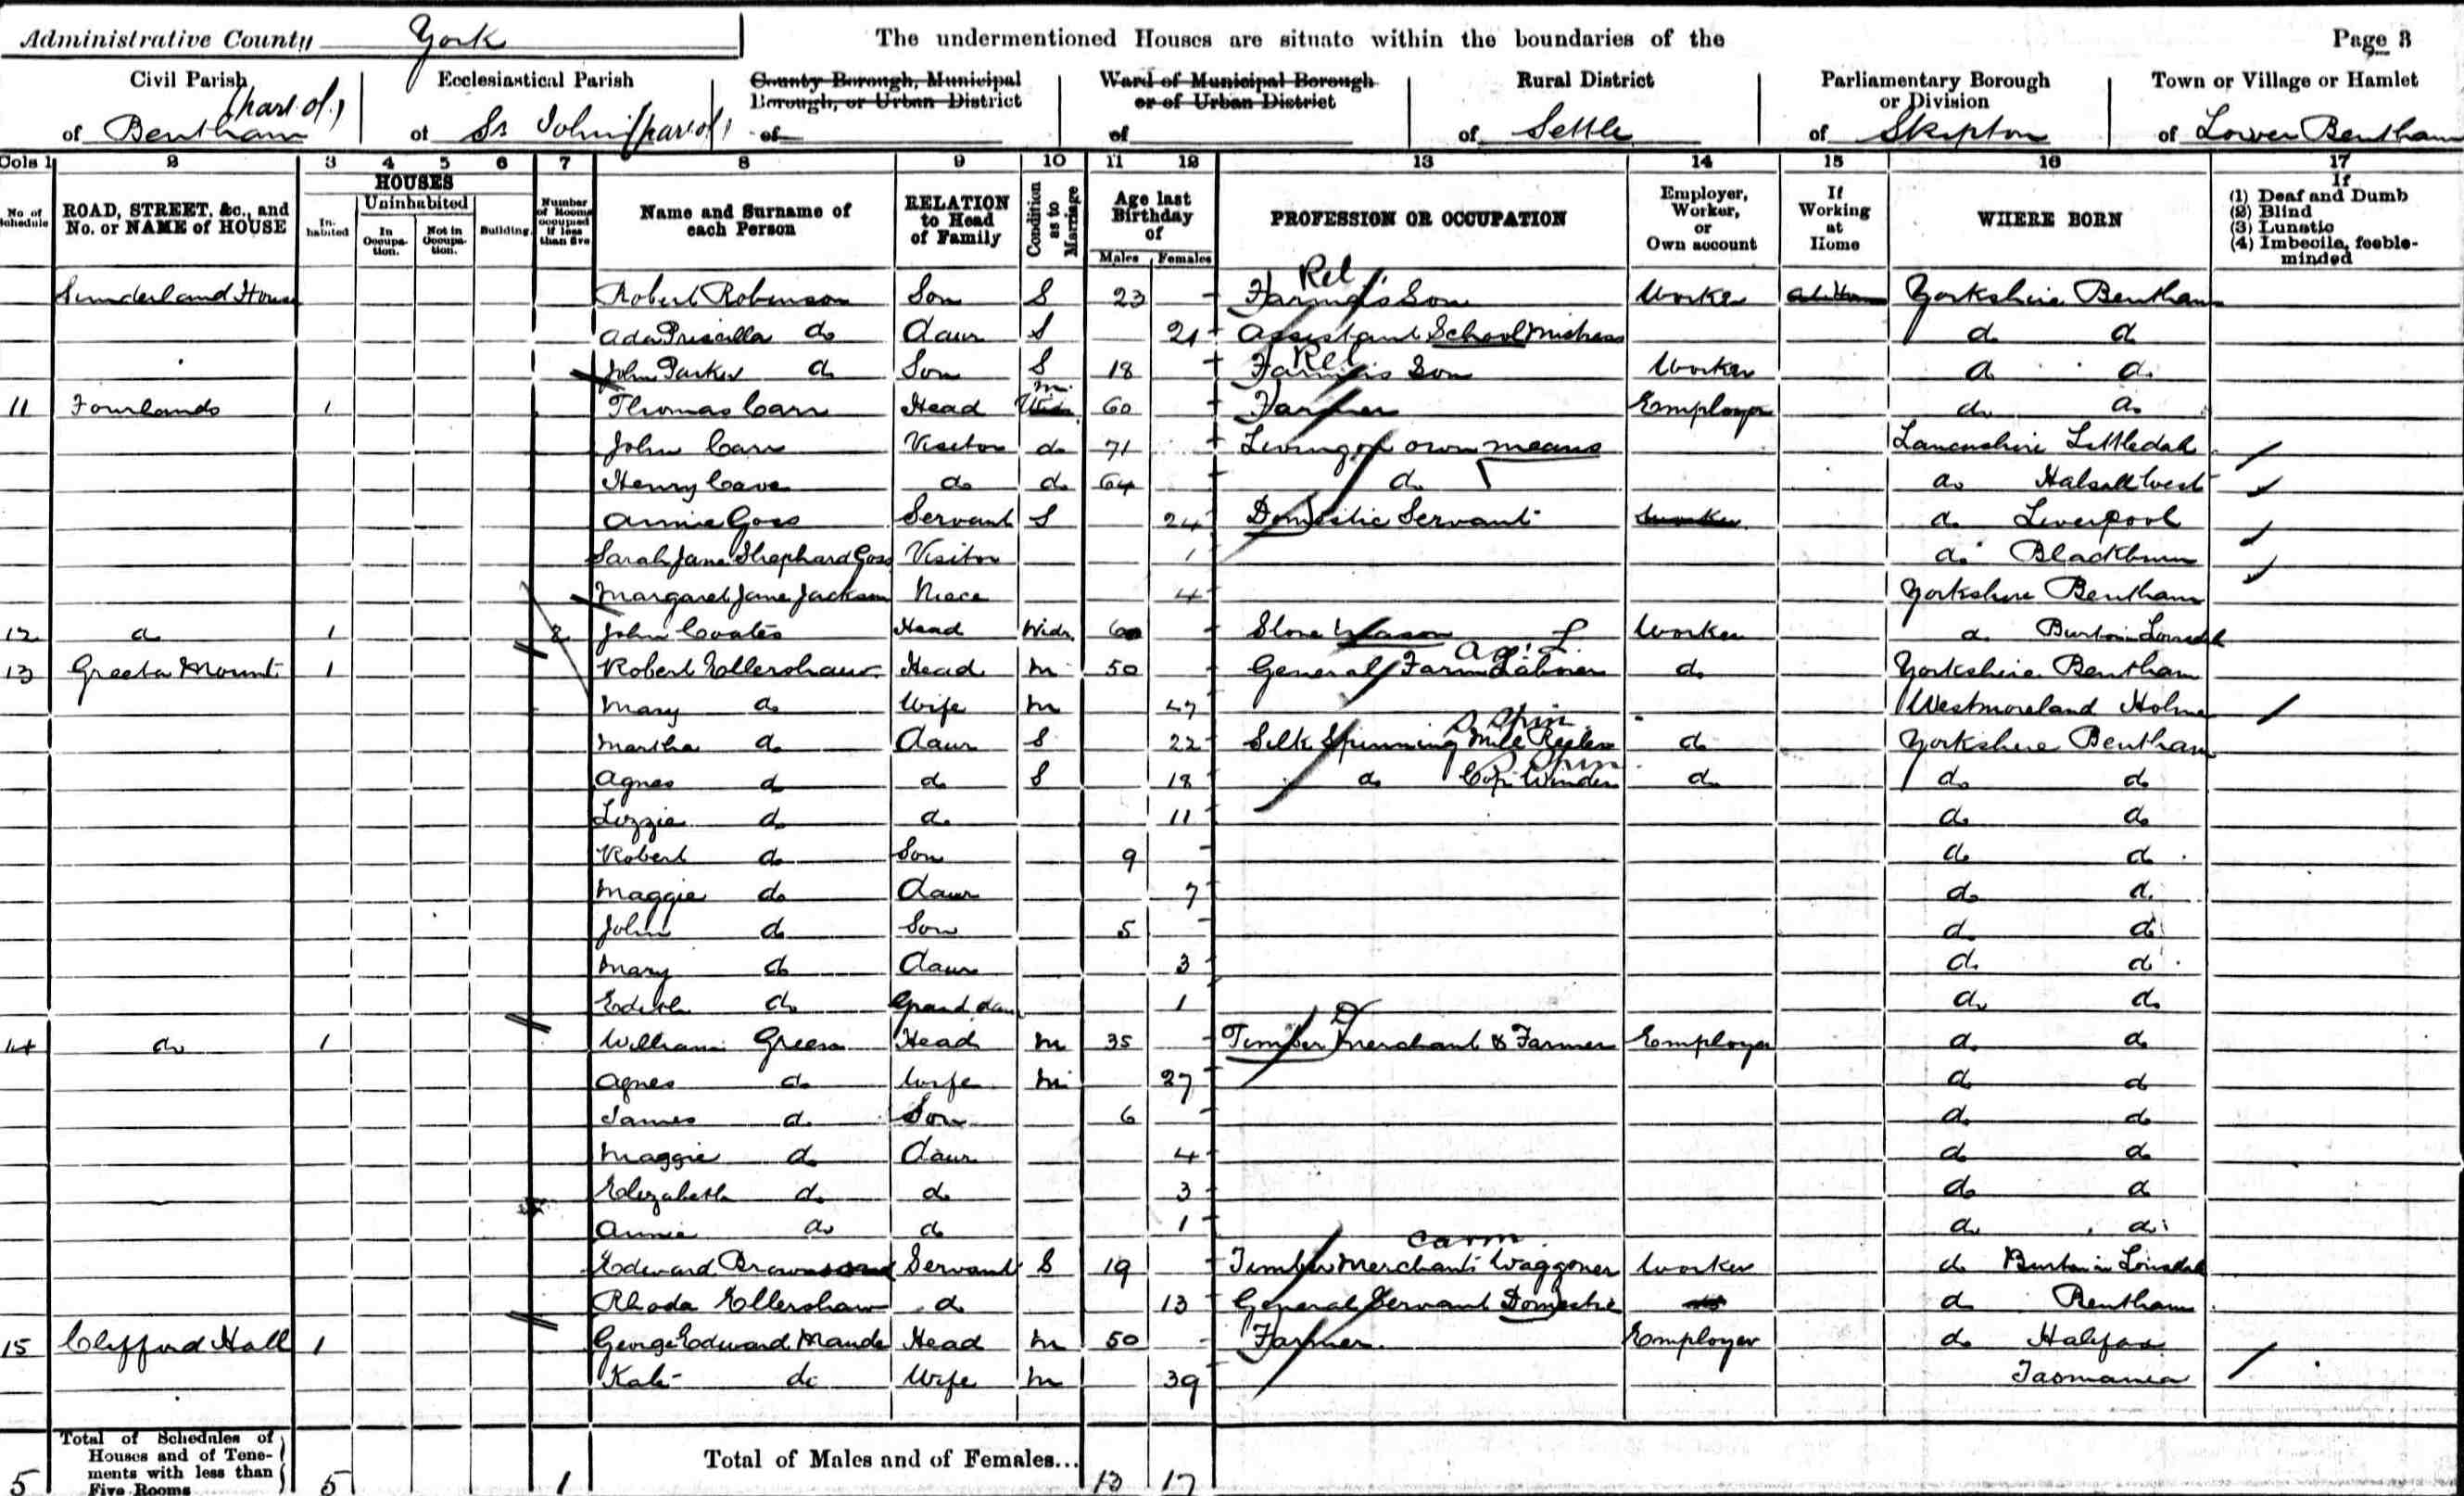 Administrative County York The undermentioned Houses are situate within the boundaries of the Page 3
Civil Parish Ecclesiastical Parish County Borough, Municipal Borough, or Urban District Ward of Municipal Borough or of Urban District Rural District Parliamentary Borough or Division Town or Village or Hamlet
of Bentham (part of) of St John (part of) of of of Settle of Skipton of Lower Bentham
Cols 1 2 3 4 5 6 7 8 9 10 11 12 13 14 15 16 17
No. of Schedule ROAD, STREET, &c., and No. or NAME of HOUSE HOUSES Inhabited Uninhabited In Occupation. Not in Occupation. Building Number of Rooms occupied if less than five Name and Surname of each Person RELATION to Head of Family Condition as to Marriage Age last Birthday of Males Females PROFESSION OR OCCUPATION Employer, Worker, or Own account If Working at Home WHERE BORN If (1) Deaf and Dumb (2) Blind (3) Lunatic (4) Imbecile, feeble-minded
Sunderland House Robert Robinson Son S 23 Farmer's Son Rel Worker Yorkshire Bentham
Ada Priscilla do Daur S 21 Assistant School Mistress do do
John Parker do Son S 18 Farmer's Son Rel Worker do do
11 Fourlands 1 Thomas Carr Head m 60 Farmer Employer do do
John Carr Visitor do 71 Living on own means Lancashire Littledale
Henry Cave do do 64 do do Halsall West
Annie Goss Servant S 24 Domestic Servant do Liverpool
Sarah Jane Shephard Goss Visitor 1 do Blackburn
Margaret Jane Jackson Niece 4 Yorkshire Bentham
12 do 1 2 John Coates Head Widr 60 Stone Mason Worker do Burton Lonsdale
13 Greeta Mount 1 Robert Ellershaw Head m 50 General Farm Labourer Ag. L do Yorkshire Bentham
Mary do Wife m 47 Westmoreland Holme
Martha do Daur S 22 Silk Spinning Mill Reeler S Spin do Yorkshire Bentham
Agnes do do S 18 do Cop Winder S Spin do do do
Lizzie do do 11 do do
Robert do Son 9 do do
Maggie do Daur 7 do do
John do Son 5 do do
Mary do Daur 3 do do
Edith do Grand daur 1 do do
14 do 1 William Green Head m 35 Timber Merchant & Farmer Employer do do
Agnes do Wife m 27 do do
James do Son 6 do do
Maggie do Daur 4 do do
Elizabeth do do 3 do do
Annie do do 1 do do
Edward Servant S 19 Timber Merchant's Waggoner Carm Worker do Burton in Lonsdale
Rhoda Ellershaw do 13 General Servant Domestic do Bentham
15 Clifford Hall 1 George Edward Maude Head m 50 Farmer Employer do Halifax
Kate do Wife m 39 Tasmania
5 Total of Schedules of Houses and of Tenements with less than Five Rooms 5 1 Total of Males and of Females... 13 17